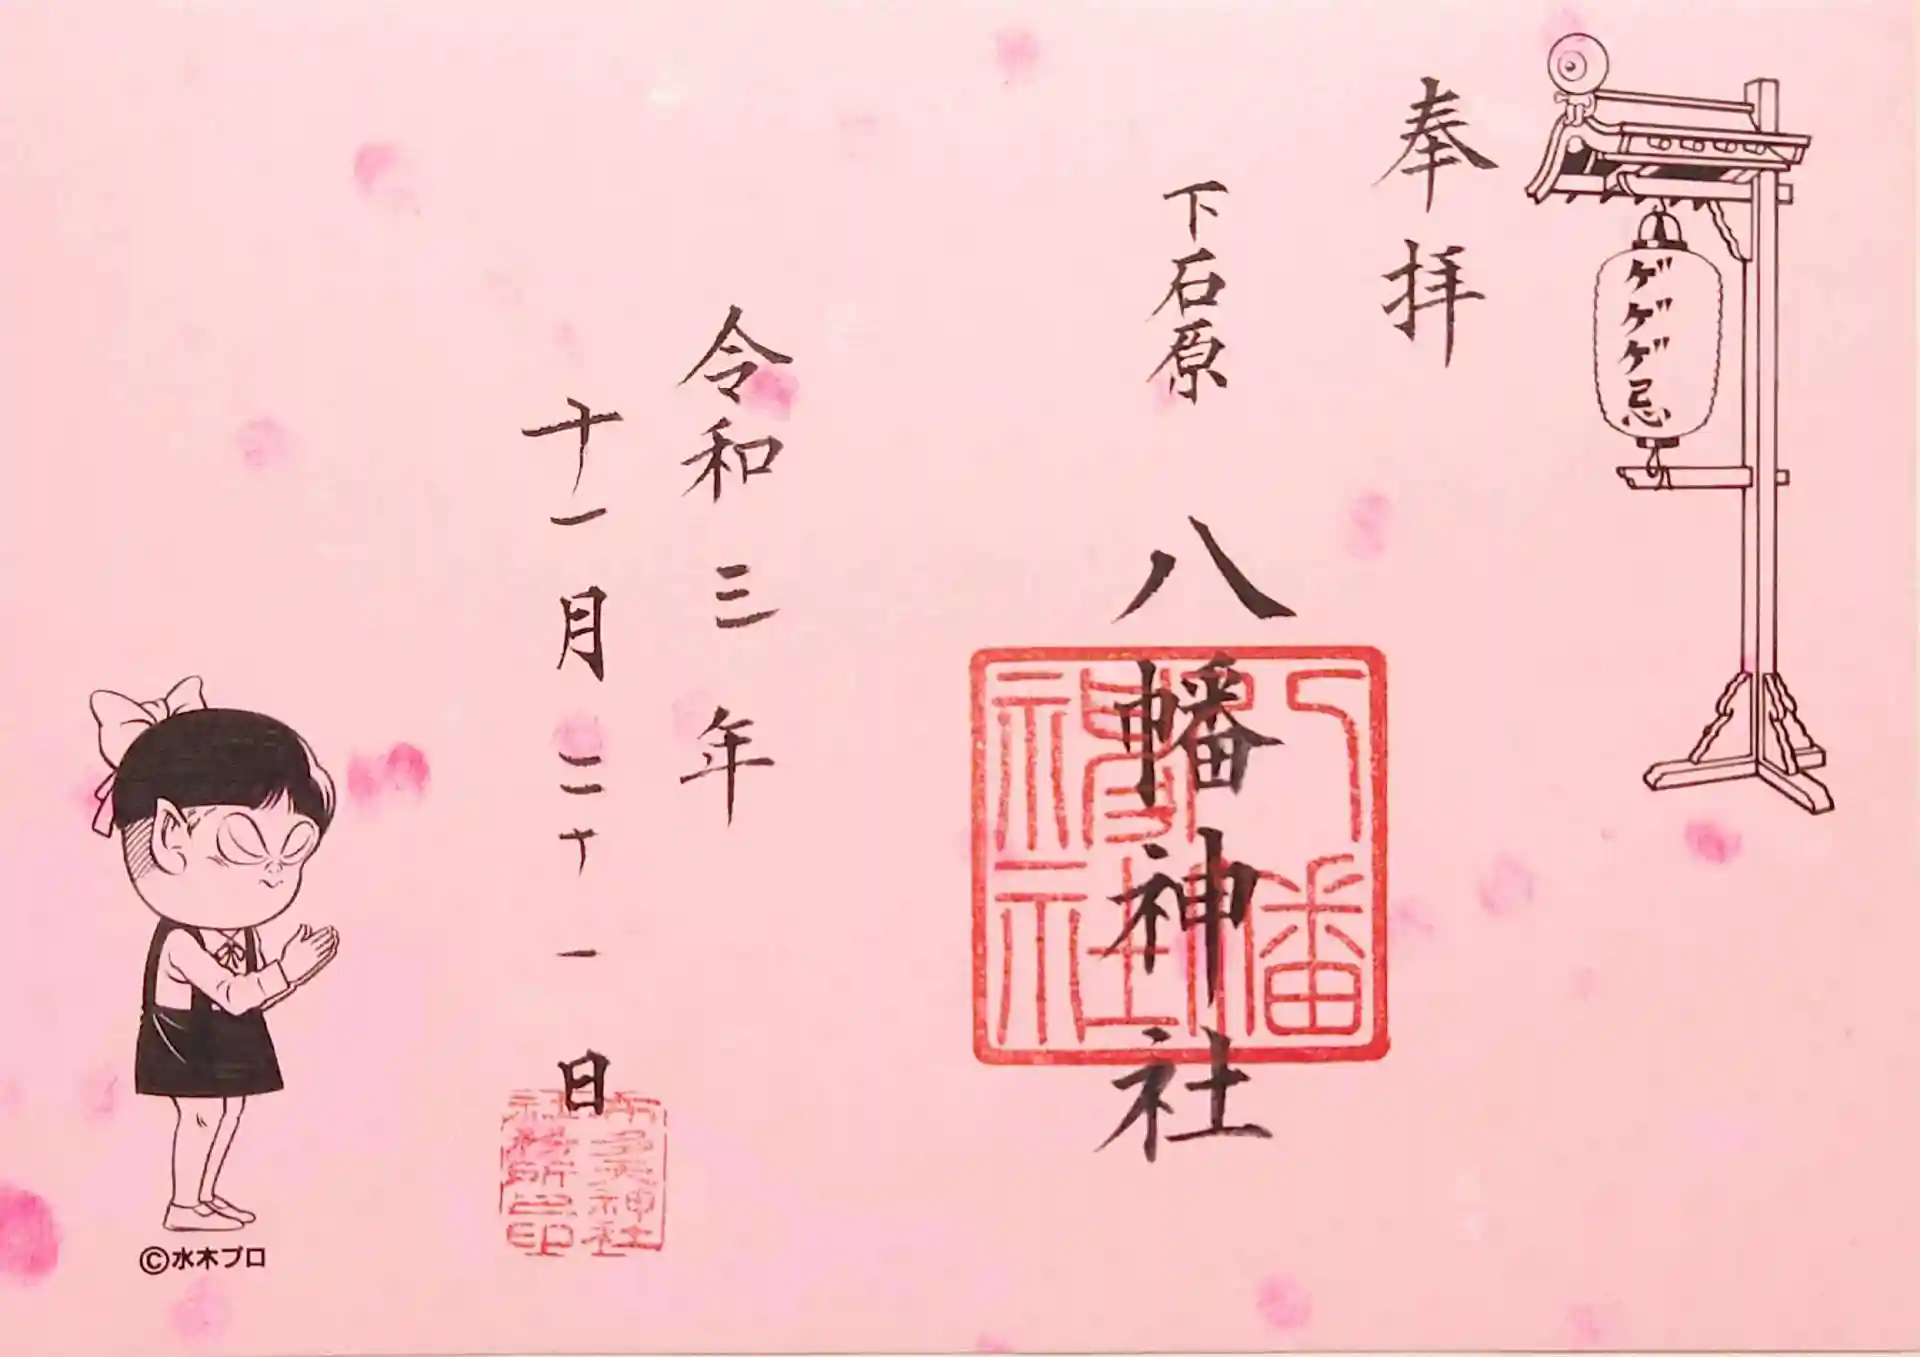 ゲゲゲ忌
奉拝
下石原
八幡神社
八幡神社
令和三年
十一月二十一日
布多天神社
社務所之印
©水木プロ